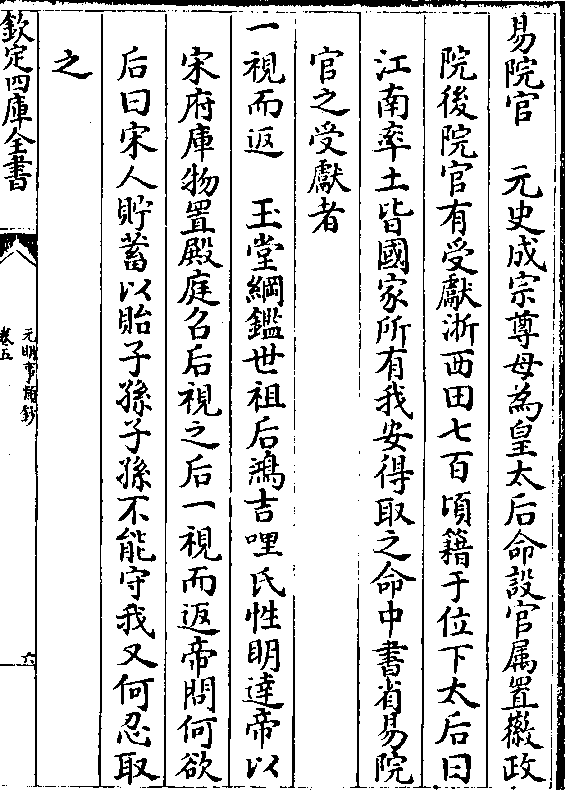 易院官　元史成宗尊母為皇太后命設官属置徽政
院後院官有受獻浙西田七百頃籍于位下太后曰
江南率土皆國家所有我安得取之命中書省易院
官之受獻者
一視而返　玉堂綱鑑世祖后鴻吉哩氏性明達帝以
宋府庫物置殿庭召后視之后一視而返帝問何欲
后曰宋人貯蓄以貽子孫子孫不能守我又何忍取
之
欽定四庫全書
元明事類鈔
卷五
六